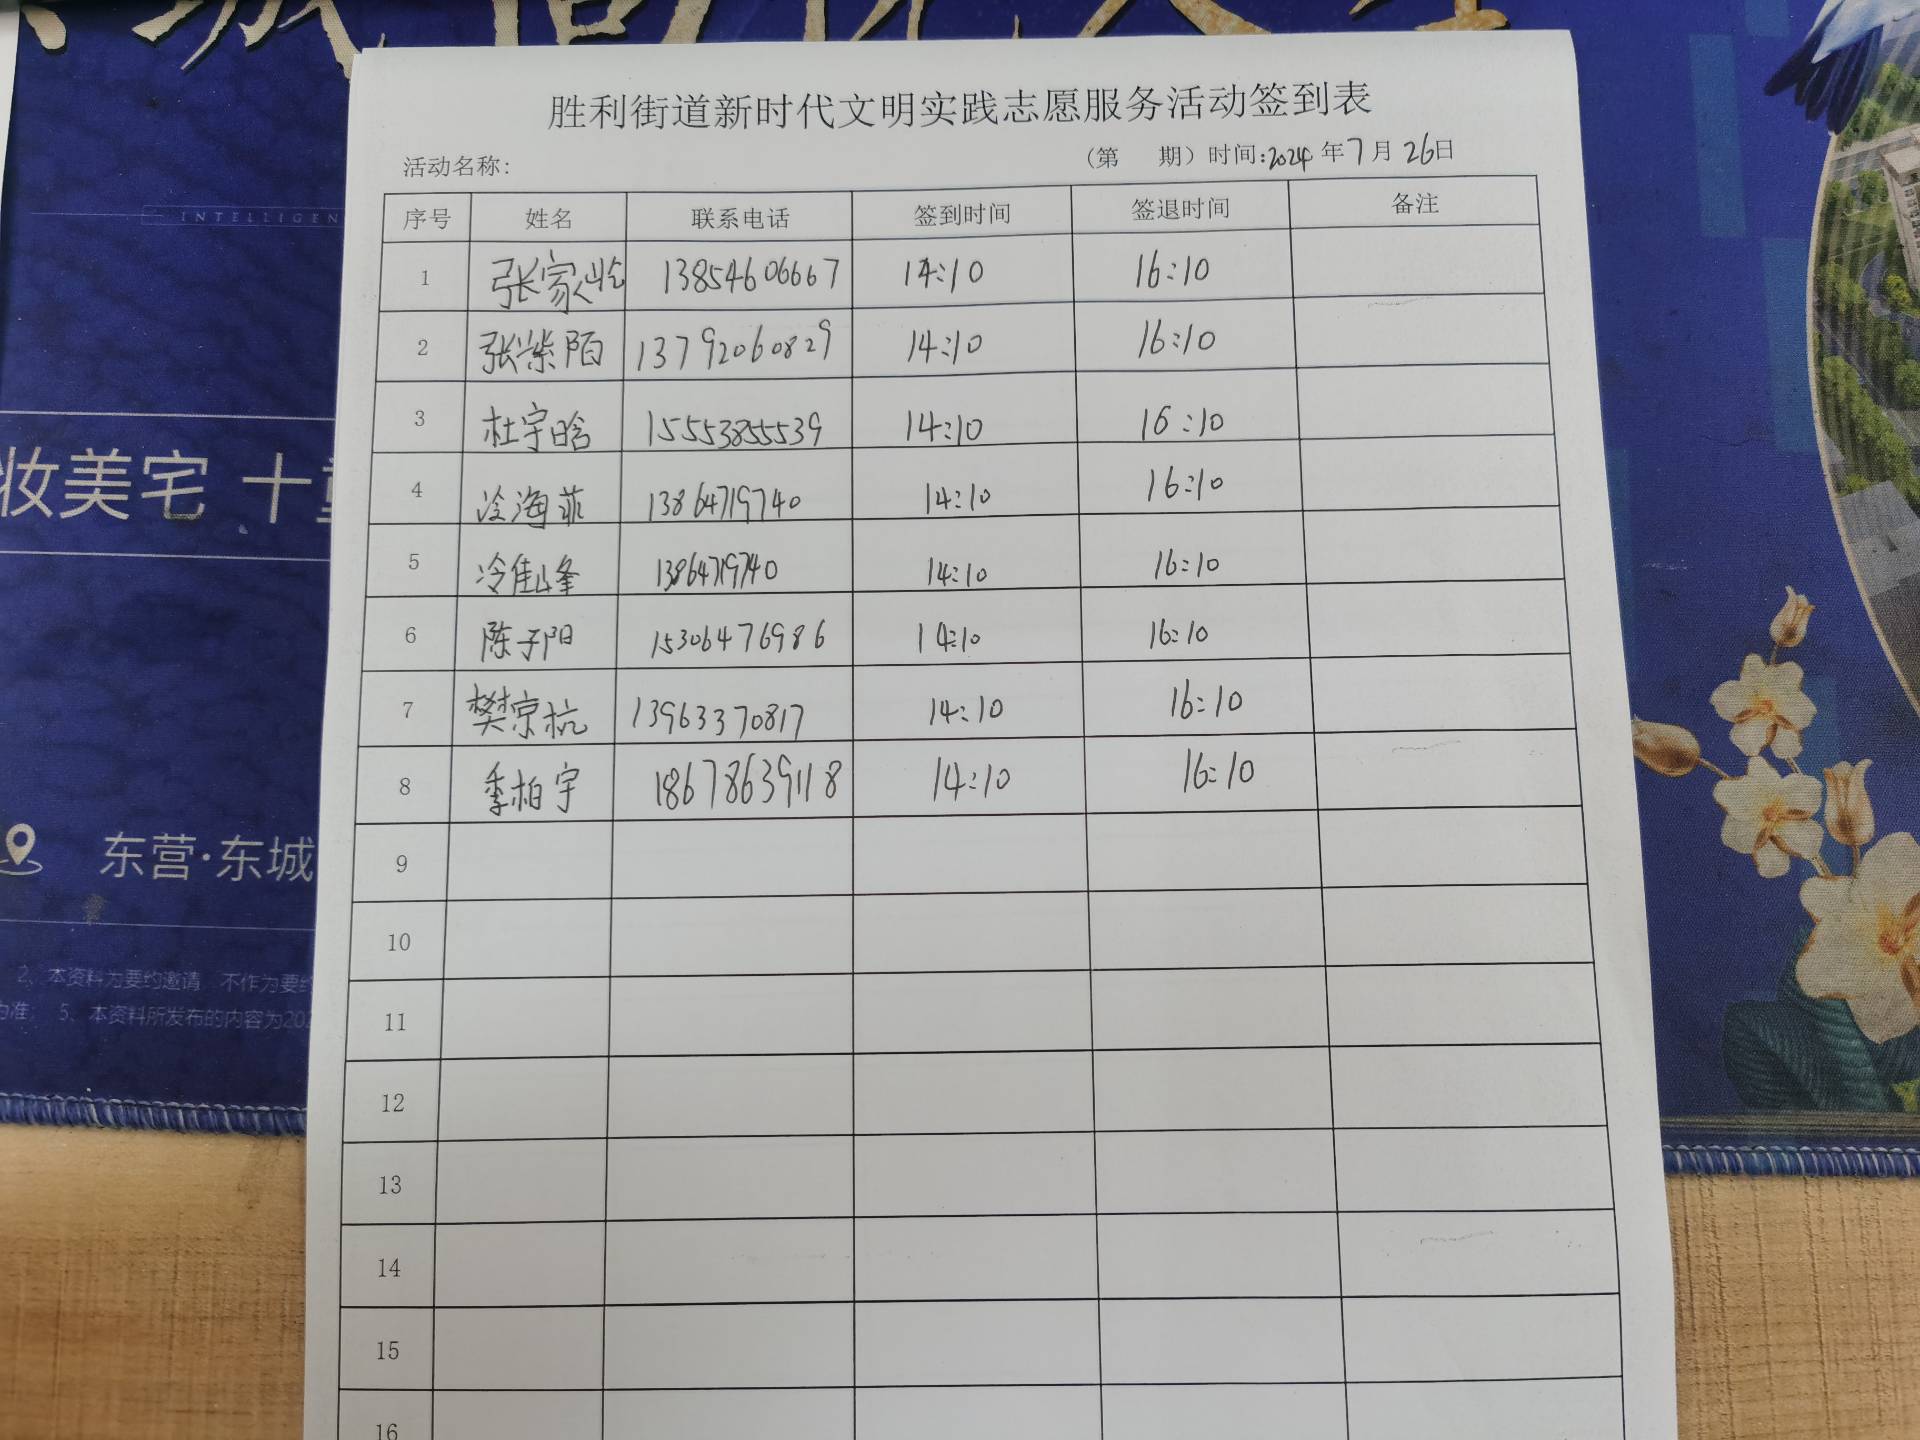 INTELLIGEN
妆美宅 十
东营·东城
2、本资料为要约邀请 不作为要约
为准; 5、本资料所发布的内容为202
胜利街道新时代文明实践志愿服务活动签到表
活动名称: （第 期）时间:2024 年 7 月 26日
序号 姓名 联系电话 签到时间 签退时间 备注
1 张家屹 13854606667 14:10 16:10
2 张紫陌 13792060829 14:10 16:10
3 杜宇晗 15553855539 14:10 16:10
4 冷海菲 13864719740 14:10 16:10
5 冷佳峰 13864719740 14:10 16:10
6 陈子阳 15306476986 14:10 16:10
7 樊京杭 13963370817 14:10 16:10
8 季柏宇 18678639118 14:10 16:10
9
10
11
12
13
14
15
16